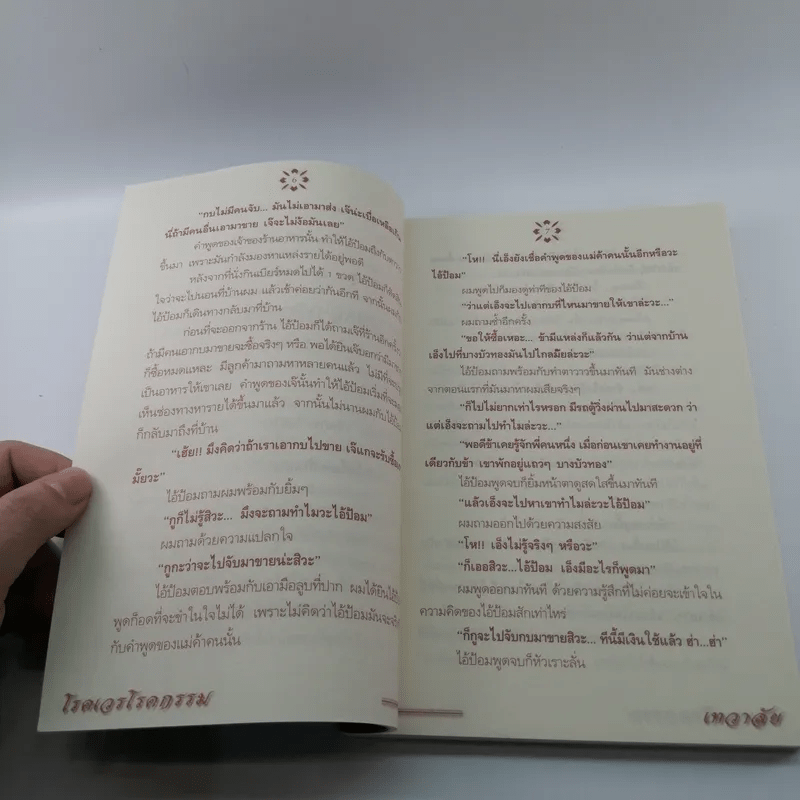 6
“กบไม่มีคนจับ... มันไม่เอามาส่ง เจ๊น่ะเบื่อเหลือเกิน
นี่ถ้ามีคนอื่นเอามาขาย เจ๊จะไม่ง้อมันเลย”
คำพูดของเจ้าของร้านอาหารนั้น ทำให้ไอ้ป้อมถึงกับ
ขึ้นมา เพราะมันกำลังมองหาแหล่งรายได้อยู่พอดี
หลังจากที่นั่งกินเบียร์หมดไปได้ 1 ขวด ไอ้ป้อมก็
ใจว่าจะไปนอนที่บ้านผม แล้วเช้าค่อยว่ากันอีกที จากนั้นผมกับ
ไอ้ป้อมก็เดินทางกลับมาที่บ้าน
ก่อนที่จะออกจากร้าน ไอ้ป้อมก็ได้ถามเจ๊ที่ร้านอีกครั้ง
ถ้ามีคนเอากบมาขายจะซื้อจริงๆ หรือ พอได้ยินเจ๊บอกว่ามี
ก็ซื้อหมดแหละ มีลูกค้ามาถามหาหลายคนแล้ว ไม่มี
เป็นอาหารให้เขาเลย คำพูดของเจ๊นั้นทำให้ไอ้ป้อมเริ่ม
เห็นช่องทางหารายได้ขึ้นมาแล้ว จากนั้นไม่นานผมกับไอ้ป้อม
ก็กลับมาถึงที่บ้าน
“เฮ้ย!! มึงคิดว่าถ้าเราเอากบไปขาย เจ๊แกจะรับซื้อ
มั๊ยวะ”
ไอ้ป้อมถามผมพร้อมกับยิ้มๆ
“กูก็ไม่รู้สิวะ... มึงจะถามทำไมวะไอ้ป้อม”
ผมถามด้วยความแปลกใจ
“กูกะว่าจะไปจับมาขายน่ะสิวะ”
ไอ้ป้อมตอบพร้อมกับเอามือลูบที่ปาก ผมได้ยินไอ้ป้อม
พูดก็อดที่จะขำในใจไม่ได้ เพราะไม่คิดว่าไอ้ป้อมมันจะจริงจัง
กับคำพูดของแม่ค้าคนนั้น
โรคเวรโรคกรรม
7
“โห!! นี่เอ็งยังเชื่อคำพูดของแม่ค้าคนนั้นอีกหรือวะ
ไอ้ป้อม”
ผมพูดไปก็มองดูท่าทีของไอ้ป้อม
“ว่าแต่เอ็งจะไปเอากบที่ไหนมาขายให้เขาล่ะวะ...”
ผมถามซ้ำอีกครั้ง
“ขอให้ซื้อเหอะ... ข้ามีแหล่งก็แล้วกัน ว่าแต่จากบ้าน
เอ็งไปที่บางบัวทองมันไปไกลมั๊ยล่ะวะ”
ไอ้ป้อมถามพร้อมกับทำตาวาวขึ้นมาทันที มันช่างต่าง
จากตอนแรกที่มันมาหาผมเสียจริงๆ
“ก็ไปไม่ยากเท่าไรหรอก มีรถตู้วิ่งผ่านไปมาสะดวก ว่า
แต่เอ็งจะถามไปทำไมล่ะวะ...”
“พอดีข้าเคยรู้จักพี่คนหนึ่ง เมื่อก่อนเขาเคยทำงานอยู่ที่
เดียวกับข้า เขาพักอยู่แถวๆ บางบัวทอง”
ไอ้ป้อมพูดจบก็ยิ้มหน้าตาดูสดใสขึ้นมาทันที
“แล้วเอ็งจะไปหาเขาทำไมล่ะวะไอ้ป้อม”
ผมถามออกไปด้วยความสงสัย
“โห!! เอ็งไม่รู้จริงๆ หรือวะ”
“ก็เออสิวะ...ไอ้ป้อม เอ็งมีอะไรก็พูดมา”
ผมพูดออกมาทันที ด้วยความรู้สึกที่ไม่ค่อยจะเข้าใจใน
ความคิดของไอ้ป้อมสักเท่าไหร่
“ก็กูจะไปจับกบมาขายสิวะ... ทีนี้มีเงินใช้แล้ว ฮ่า...ฮ่า”
ไอ้ป้อมพูดจบก็หัวเราะลั่น
เทวาลัย